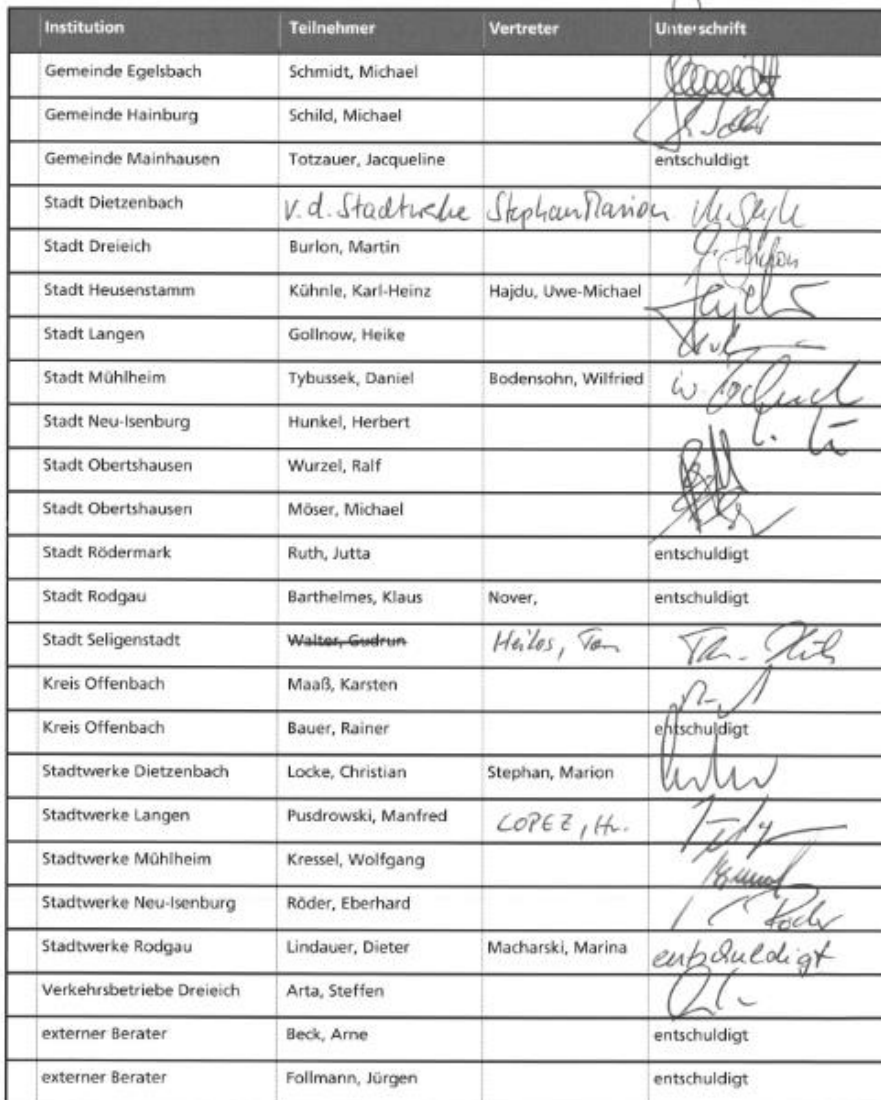 Institution Teilnehmer Vertreter Unterschrift
Gemeinde Egelsbach Schmidt, Michael
Gemeinde Hainburg Schild, Michael
Gemeinde Mainhausen Totzauer, Jacqueline entschuldigt
Stadt Dietzenbach v.d. Stadtwerke Stephan Marion
Stadt Dreieich Burlon, Martin
Stadt Heusenstamm Kühnle, Karl-Heinz Hajdu, Uwe-Michael
Stadt Langen Gollnow, Heike
Stadt Mühlheim Tybussek, Daniel Bodensohn, Wilfried
Stadt Neu-Isenburg Hunkel, Herbert
Stadt Obertshausen Wurzel, Ralf
Stadt Obertshausen Möser, Michael
Stadt Rödermark Ruth, Jutta entschuldigt
Stadt Rodgau Barthelmes, Klaus Nover, entschuldigt
Stadt Seligenstadt Walter, Gudrun Heilos, Tom
Kreis Offenbach Maaß, Karsten
Kreis Offenbach Bauer, Rainer entschuldigt
Stadtwerke Dietzenbach Locke, Christian Stephan, Marion
Stadtwerke Langen Pusdrowski, Manfred LOPEZ, Hr.
Stadtwerke Mühlheim Kressel, Wolfgang
Stadtwerke Neu-Isenburg Röder, Eberhard
Stadtwerke Rodgau Lindauer, Dieter Macharski, Marina entschuldigt
Verkehrsbetriebe Dreieich Arta, Steffen
externer Berater Beck, Arne entschuldigt
externer Berater Follmann, Jürgen entschuldigt